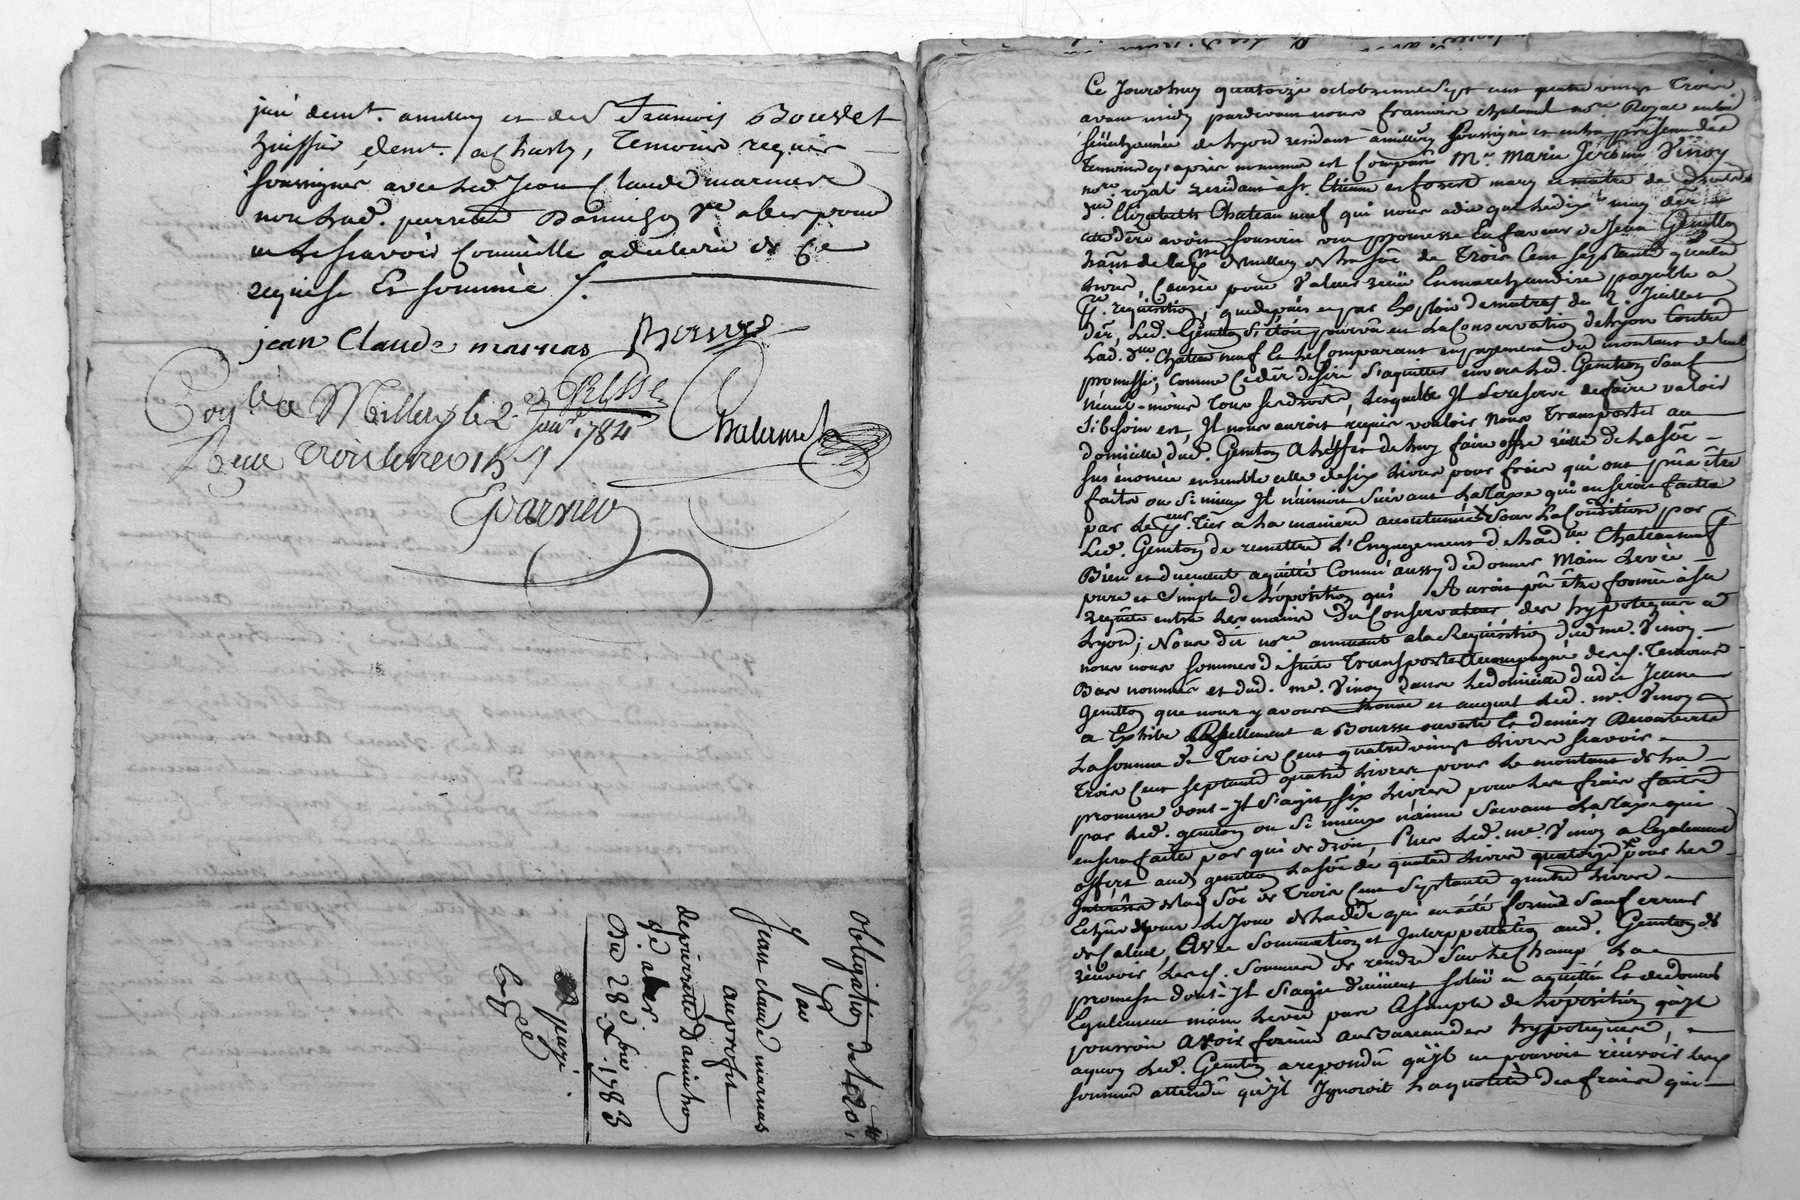 juré demt. amillery et de Sr François Bouvet
huissier demt. a Charly, Temoins requis
soussignés avec led Jean Claude marnas
non lad. perrette Damichon ve aber pour
ne le scavoir Comme elle adeclaré de Ce
requise Et sommée /.
jean Claude marnas Bouvet
Conlé a Millery le 2. janer 1784
Reçu trois livres 15 s
Chalamel
Eparvier
obligation de 120 ₶,
par
Jean claude marnas
auprofit
de pierrette Damichon
ve aber
Du 28 xbre 1783
payé
Ce Jourdhuy quatorze octobre mil sept cent quatre vingt Trois
avant midy pardevant nous francois chalamel nore Royal en la
sénéchaussée de Lyon residant amillery soussigné et entre présence des
Temoins cy après nommés est Comparu Me. Marie Jérôme Vinoy
nore. royal residant a St. Etienne en forest mary et maitre des droits de
de. Elizabeth Chateauneuf qui nous adit que ledix may der
avoir souscrit une promesse En faveur de Jean Genillon
hant. de la psse de millery de la soe de Trois Cent septante quatre
livres, Causée pour Valeur reçue En marchandise payable a
requisition, que depuis et par Exploit du 2. Juillet
der, Led. Genillon s'étoit pourvu en La Conservation de Lyon Contre
Lad. de Chateauneuf Et le Comparant en payement du montant de lad
promesse, Comme Ce der desire s'aquitter envers Led. Genillon sauf
néant-moins tous ses droits, lesquels Il se reserve de faire valoir
si besoin est, Il nous auroit requis vouloir Nous Transporter au
domicille dud. Genillon A l'effet de luy faire offre réelle de la soe
sus énoncée ensemble celle de six livres pour frais qui ont pû être
faits ou si mieux Il n'aimoit suivant La Taxe qui en seroit faitte
par le a la maniere accoutumée sous La Condition par
Led. Genillon de remettre L'Engagement de lad. de Chateauneuf
Bien et duement aquitté Comm'aussy de donner Main Levée
pure et simple de L'oposition qui Auroit pû être formée à sa
requête entre les mains du Conservateur des hypoteques a
Lyon; Nous dit nore. amenant a la Requisition dud me. Vinoy
nous nous sommes de suite Transporté Accompagné de nos. Temoins
Bas nommés et dud. me. Vinoy dans Le domicille dudit Jean
Genillon que nous y avons trouvé et auquel Led. me. Vinoy
a Exhibé Réellement a Bourse ouverte Et deniers Decouverts
La somme de Trois Cent quatre vingt livres scavoir
Trois Cent septante quatre livres pour Le montant de la
promesse dont-Il s'agit, six Livres pour Les frais faits
par Led. genillon ou si mieux n'aime suivant La Taxe qui
en sera faitte par qui de droit, Plus Led. me. Vinoy a Egalement
offert aud genillon La soe de quatre Livres quatorze pour Les
Intérêts de lad soe de Trois Cent Septante quatre Livres
depuis Le Jour de la dde qui en a été formée sauf erreur
de Calcul, Avec Sommation et Interpellation aud. Genillon de
recevoir Lesd. sommes de rendre sur Le Champ La
promesse dont-Il s'agit duement solue et aquittée Et de donner
Egalement main Levée pure Et simple de L'oposition qu'Il
pourroit avoir formée au Bureau des hypoteques,
aquoy Led. Genillon a repondu qu'Il ne pouvoit recevoir les
sommes attendu qu'Il Ignoroit La quotité des frais qui